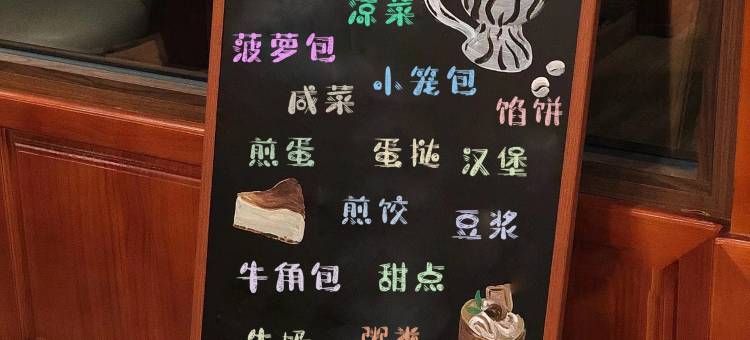 凉菜
菠萝包
小笼包
咸菜
馅饼
煎蛋
蛋挞
汉堡
煎饺
豆浆
牛角包
甜点
牛奶
粥类